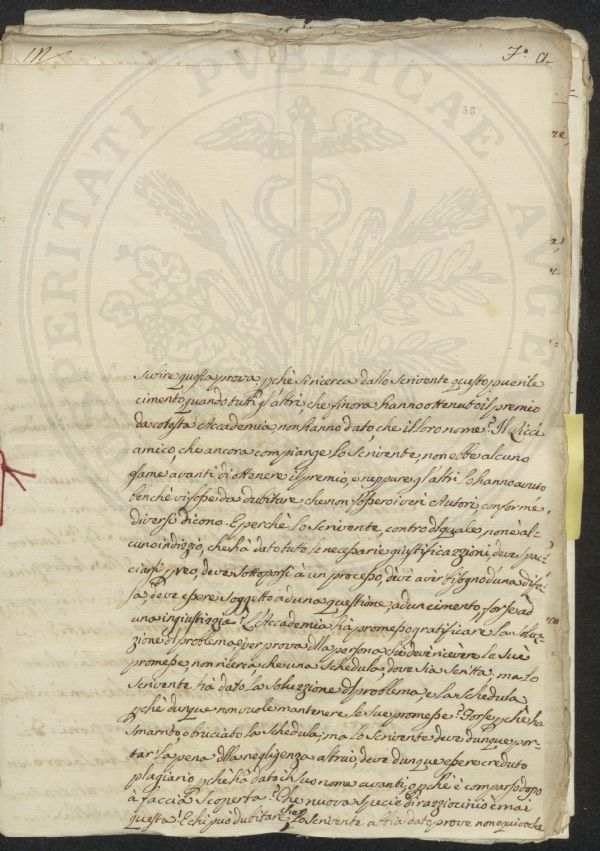 PROSPERITATI PUBLICAE AUGE
36
subire questa prova, pchè si ricerca dallo Scrivente questo puerile
cimento quando tutti gl'altri, che finora hanno ottenuto il premio
da cotesta Accademia non hanno dato che il loro nome? Il Ricci
amico che ancora compiange lo Scrivente, non ebbe alcuno
same avanti di ottenere il premio, e neppure gl'altri lo hanno avuto
benchè vi fosse da dubitare che non fossero i veri Autori, conforme
diversi dicono. E perchè lo Scrivente, contro dl quale non è al-
cuno indizzio, che hà dato tutte le necessarie giustificazzioni, deve spac-
ciarsi p reo, deve sottoporsi à un processo deve aver bisogno d'una dife-
sa, deve essere soggetto ad una questione, ad un cimento, forse ad
una ingiustizzia? L'Accademia hà promesso gratificare la soluz-
zione dl problema e per prova dlla persona che deve ricevere le sue
promesse non ricerca che una schedula, dove sia scritta: ma lo
Scrivente hà dato la soluzzione dl problema, e la schedula
pchè dunque non vuole mantenere le sue promesse? Forse pchè ha
smarrito, o bruciato la schedula; ma lo Scrivente deve dunque por-
tar' la pena dlla negligenza altrui, deve dunque essere creduto
plagiario pchè hà dato il suo nome avanti, o pchè è comparso dopo
à faccia scoperta? Che nuova specie di raziocinio è mai
questa! E chi può dubitare che lo Scrivente abbia dato prove non equivoche